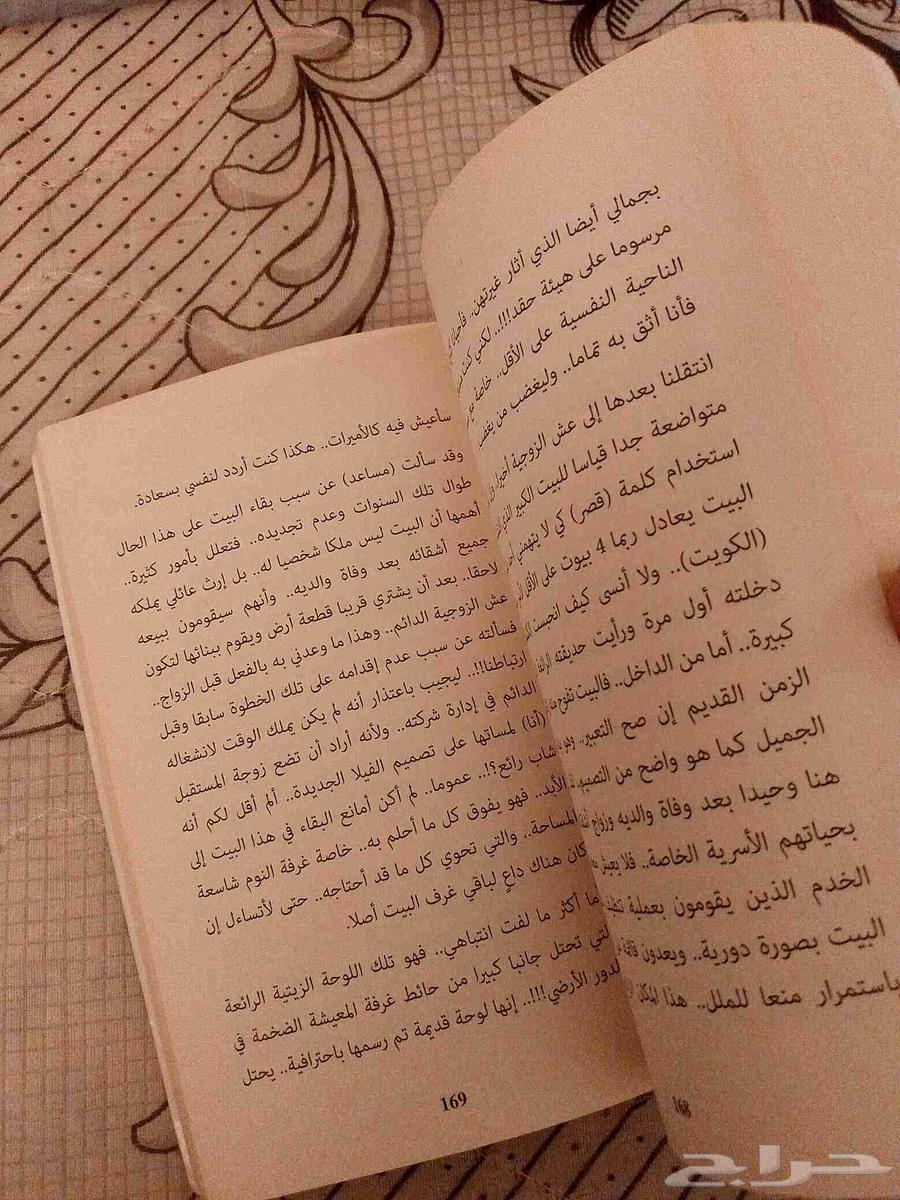 بجمالي أيضا الذي أثار غيرتهن.. فأحيانا
مرسوما على هيئة حقد!!!.. لكني كنت
الناحية النفسية على الأقل.. خاصة مع
فأنا أثق به تماما.. وليغضب من يغضب
انتقلنا بعدها إلى عش الزوجية أخيرا..
متواضعة جدا قياسا للبيت الكبير الذي
استخدام كلمة (قصر) كي لا يتهمني
البيت يعادل ربما 4 بيوت على الأقل
(الكويت).. ولا أنسى كيف انحبست
دخلته أول مرة ورأيت حديقته
كبيرة.. أما من الداخل.. فالبيت تفوح
الزمن القديم إن صح التعبير.. وهو
الجميل كما هو واضح من التصميم
هنا وحيدا بعد وفاة والديه وزواج
بحياتهم الأسرية الخاصة.. فلا يعيش
الخدم الذين يقومون بعملية
البيت بصورة دورية.. ويعدون
باستمرار منعا للملل.. هذا
168
سأعيش فيه كالأميرات.. هكذا كنت أردد لنفسي بسعادة.
وقد سألت (مساعد) عن سبب بقاء البيت على هذا الحال
طوال تلك السنوات وعدم تجديده.. فتعلل بأمور كثيرة..
أهمها أن البيت ليس ملكا شخصيا له.. بل إرث عائلي يملكه
جميع أشقائه بعد وفاة والديه.. وأنهم سيقومون ببيعه
لاحقا.. بعد أن يشتري قريبا قطعة أرض ويقوم ببنائها لتكون
عش الزوجية الدائم.. وهذا ما وعدني به بالفعل قبل الزواج..
فسألته عن سبب عدم إقدامه على تلك الخطوة سابقا وقبل
ارتباطنا!!.. ليجيب باعتذار أنه لم يكن يملك الوقت لانشغاله
الدائم في إدارة شركته.. ولأنه أراد أن تضع زوجة المستقبل
(أنا) لمساتها على تصميم الفيلا الجديدة.. ألم أقل لكم أنه
شاب رائع؟!.. عموما.. لم أكن أمانع البقاء في هذا البيت إلى
الأبد.. فهو يفوق كل ما أحلم به.. خاصة غرفة النوم شاسعة
المساحة.. والتي تحوي كل ما قد أحتاجه.. حتى لأتساءل إن
كان هناك داعٍ لباقي غرف البيت أصلا.
أما أكثر ما لفت انتباهي.. فهو تلك اللوحة الزيتية الرائعة
التي تحتل جانبا كبيرا من حائط غرفة المعيشة الضخمة في
الدور الأرضي!!!.. إنها لوحة قديمة تم رسمها باحترافية.. يحتل
169
حراج